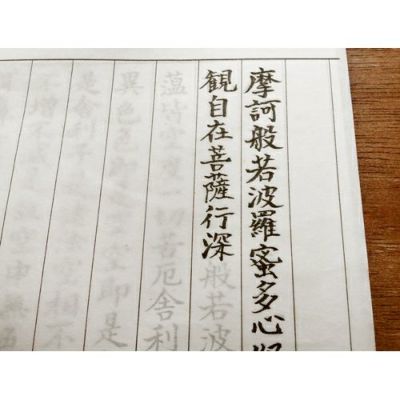 摩訶般若波羅蜜多心
観自在菩薩行深般若波
蘊皆空度一切苦厄舎利
異色色即是空空即是
是舎利子是諸法空相不
不増不減是故空中無